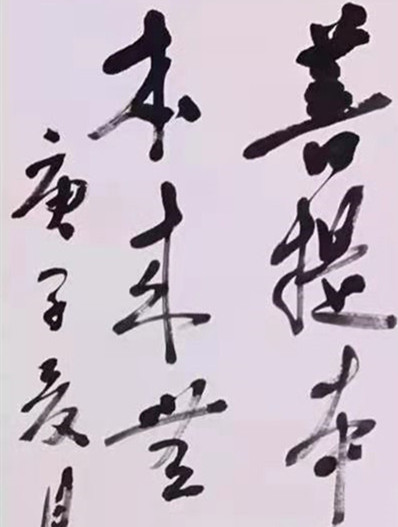 菩提本
本来无
庚子夏月